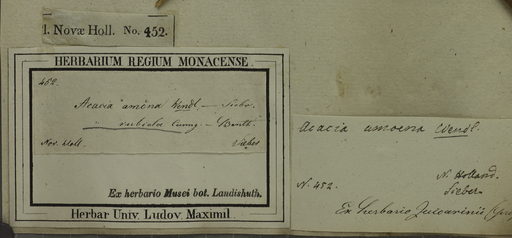 l. Novæ Holl. No. 452.
HERBARIUM REGIUM MONACENSE.
452.
Acacia amœna Wendl. — Siebr.
rubida Cunng. — Benth.
Nov. Holl. Sieber
Ex herbario Musei bot. Landishuth.
Herbar Univ. Ludov. Maximil
Acacia amoena Wendl.
N. 452. N. Holland.
Sieber
Ex herbario Zuccarinii